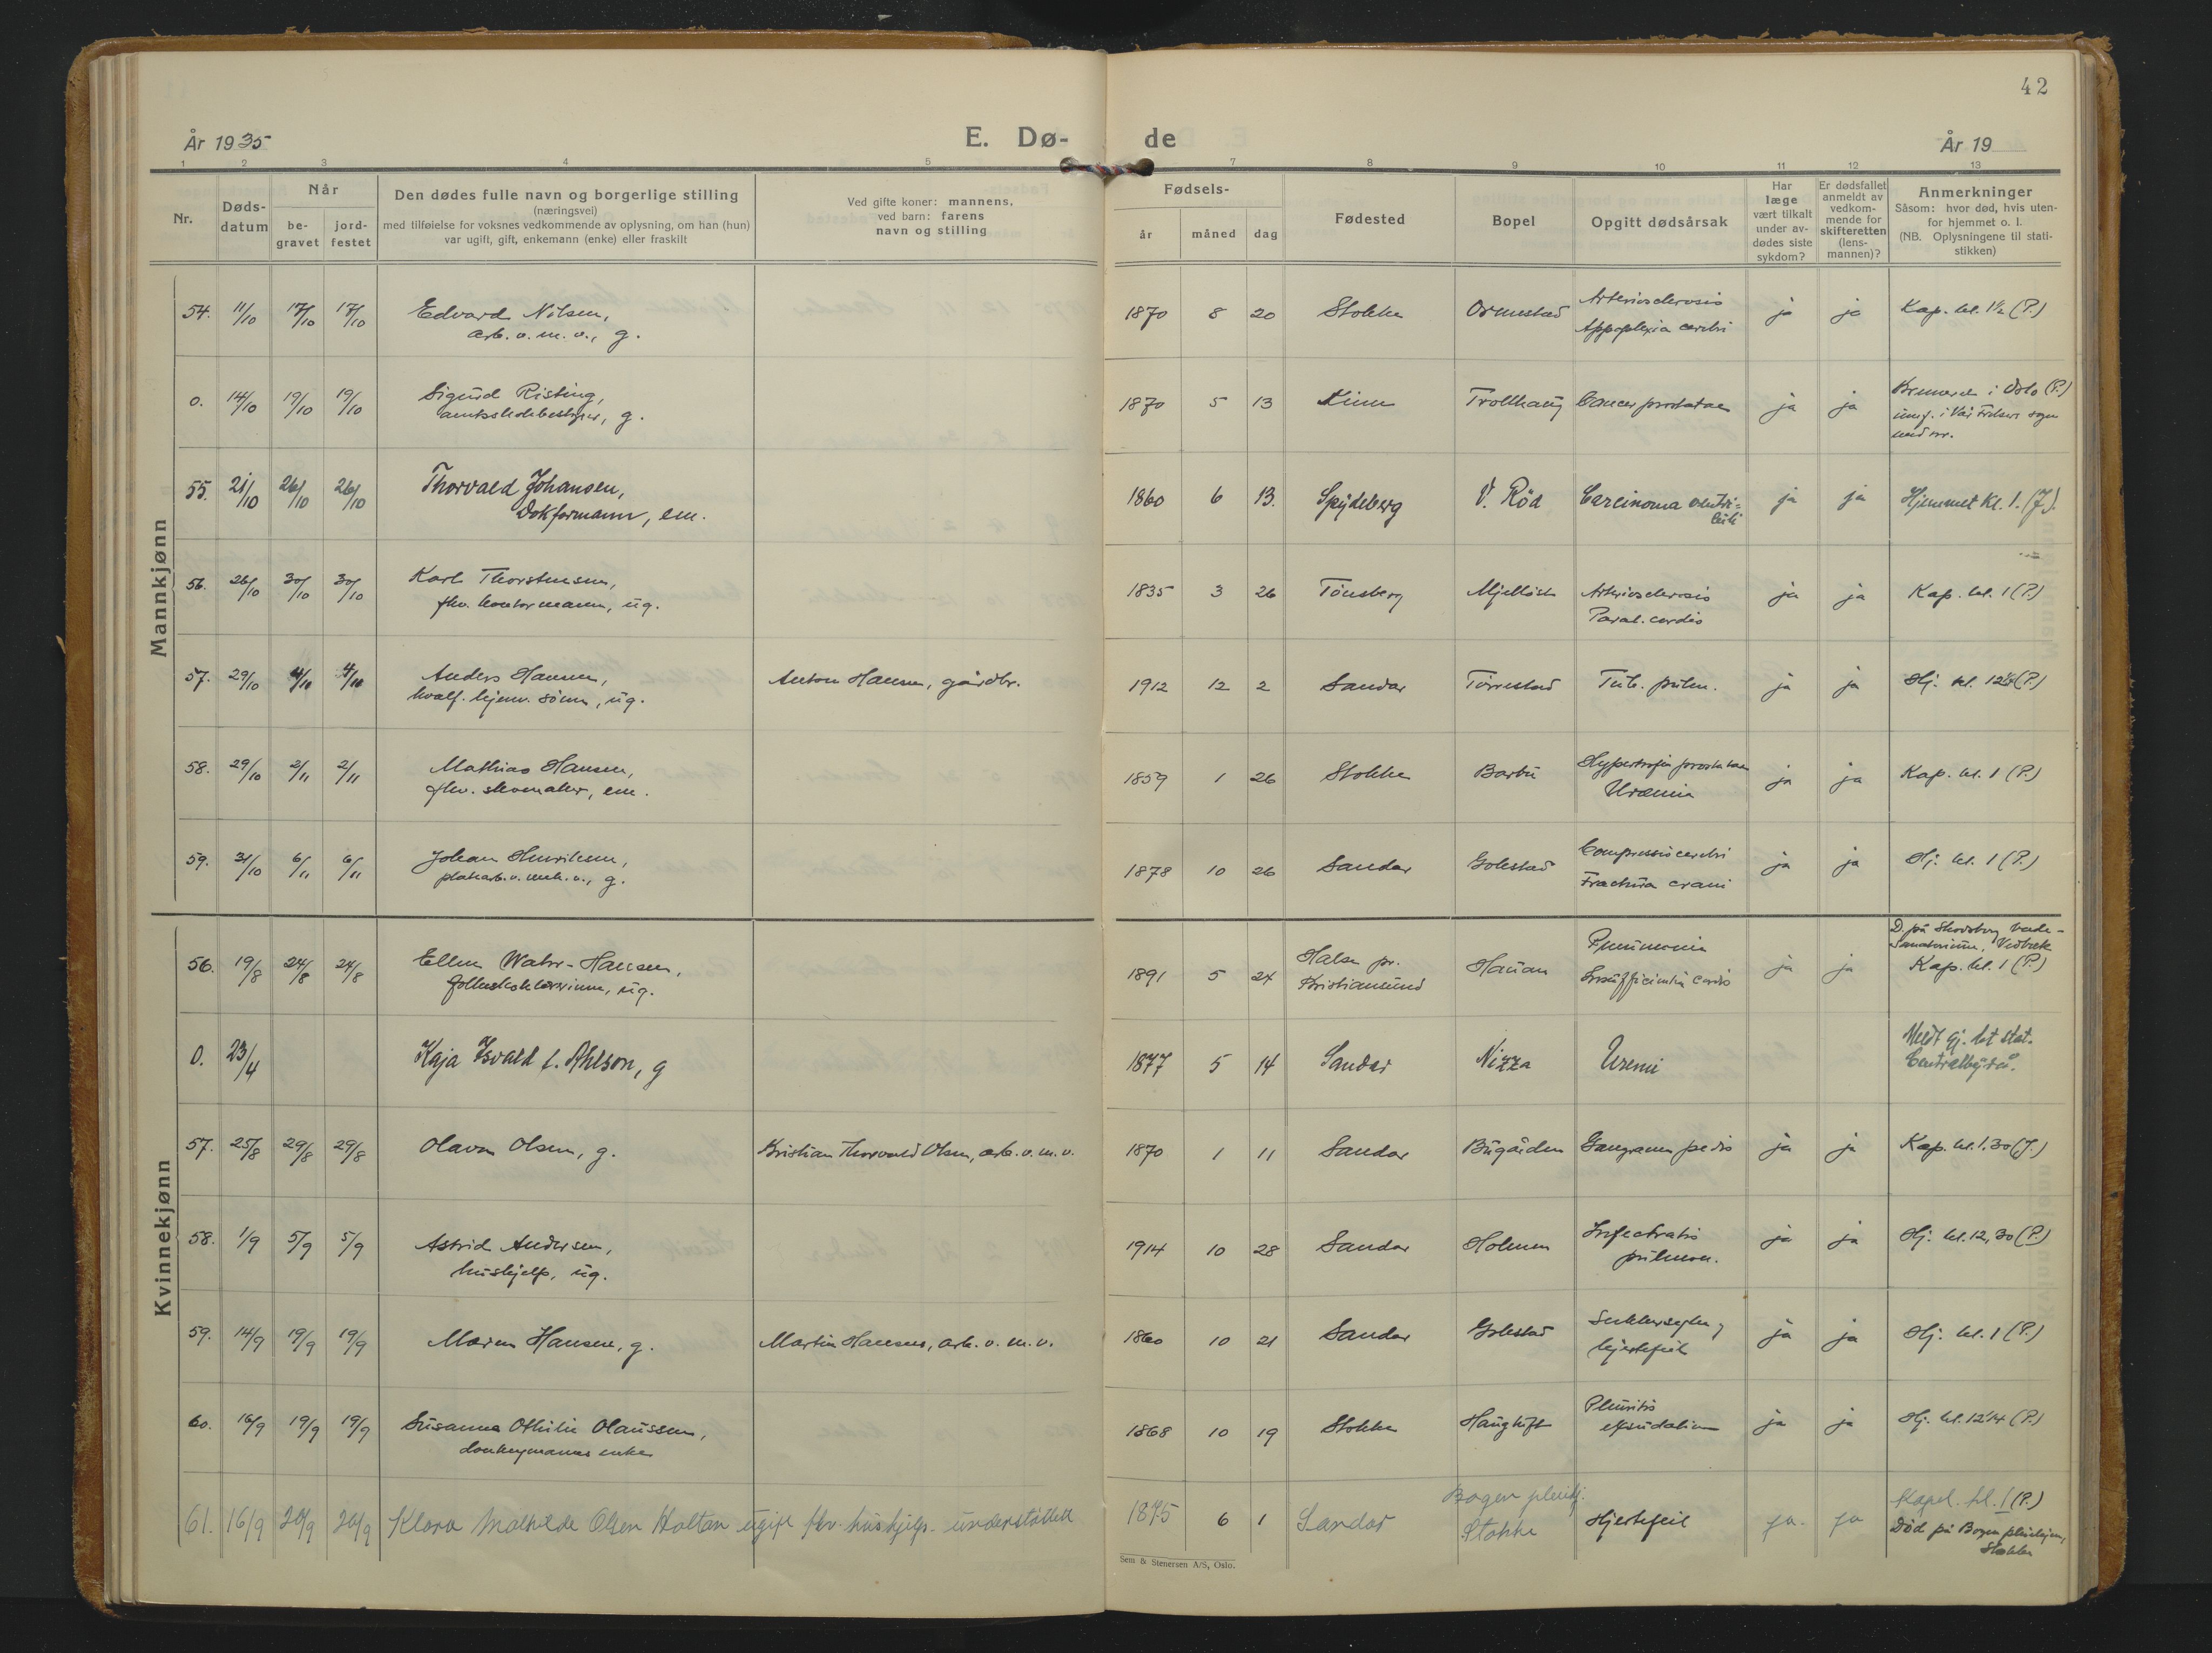 42
År 1935
E. Dø-
de
År 19
1 2 3 4 5 7 8 9 10 11 12 13
Nr.
Døds-
datum
Når
be-
gravet
jord-
festet
Den dødes fulle navn og borgerlige stilling
(næringsvei)
med tilføielse for voksnes vedkommende av oplysning, om han (hun)
var ugift, gift, enkemann (enke) eller fraskilt
Ved gifte koner: mannens,
ved barn: farens
navn og stilling
Fødsels-
år måned dag
Fødested
Bopel
Opgitt dødsårsak
Har
læge
vært tilkalt
under av-
dødes siste
sykdom?
Er dødsfallet
anmeldt av
vedkom-
mende for
skifteretten
(lens-
mannen)?
Anmerkninger
Såsom: hvor død, hvis uten-
for hjemmet o. l.
(NB. Oplysningene til stati-
stikken)
Mannkjønn
54. 11/10 17/10 17/10 Edvard Nilsen,
arb. v. m. v., g.
1870 8 20 Stokke Ormestad Arteriosclerosis
Appoplexia cerebri
ja ja Kap. kl. 1½ (P.)
0. 14/10 19/10 19/10 Sigurd Risting,
amtsskolebestyrer, g.
1870 5 13 Kinn Trollhaug Cancer prostatae ja ja
Bremeren i Oslo (P.)
i Vår Frelsers sogn
55. 21/10 26/10 26/10 Thorvald Johansen,
Dokformann, em.
1860 6 13. Spydeberg V. Röd Carcinoma ventri-
culi
ja ja Hjemmet Kl. 1. (J).
56. 26/10 30/10 30/10 Karl Thorstensen,
fhv. kontormann, ug.
1835 3 26 Tönsberg Mjellöst Arteriosclerosis
Paral. cordis
ja ja Kap. kl. 1 (P.)
57. 29/10 4/11 4/11 Anders Hansen,
hvalf. hjemv. sönn, ug.
Anton Hansen, gårdbr.
1912 12 2 Sandar Törrestad Tub. pulm. ja ja Hj. kl. 12½ (P.)
58. 29/10 2/11 2/11 Mathias Hansen,
fhv. skomaker, em.
1859 1 26 Stokke Barbu Hypertrofia prostatae
Uræmia
ja ja Kap. kl. 1 (P.)
59. 31/10 6/11 6/11 Johan Henriksen,
platearb. v. mek. v., g.
1878 10 26 Sandar Golestad Compressio cerebri
Fractura crani
ja ja Hj. kl. 1 (P.)
Kvinnekjønn
56. 19/8 24/8 24/8 Ellen Wahr-Hansen,
folkeskolelærerinne, ug.
1891 5 24 Halsa pr.
Kristiansund
Hauan
Pneumonia
Insufficientia cordis
ja ja
D. på Skodsborg bade-
Sanatorium, Vedbæk
Kap. kl. 1 (P.)
0. 23/4 Kaja Isvald f. Ahlson, g
1877 5 14 Sandar Nizza Uremi
Meldt gj. det stat.
Centralbyrå.
57. 25/8 29/8 29/8 Olava Olsen, g.
Kristian Thorvald Olsen, arb. v. m. v.
1870 1 11 Sandar Bugården Gangræn pedis ja ja Kap. kl. 1.30 (J.)
58. 1/9 5/9 5/9 Astrid Andersen,
hushjelp, ug.
1914 10 28 Sandar Holmen Infectratio
pulmon.
ja ja Hj. kl. 12,30 (P.)
59. 14/9 19/9 19/9 Maren Hansen, g.
Martin Hansen, arb. v. m. v.
1860 10 21 Sandar Golestad Sukkersyke,
hjertefeil
ja ja Hj. kl. 1 (P.)
60. 16/9 19/9 19/9 Susanna Othilie Olaussen,
donkeymanns enke
1868 10 19 Stokke Haugtuft Pleuritis
eksudativa
ja ja Hj. kl. 12¼ (P.)
61. 16/9 20/9 20/9 Klara Mathilde Olsen Haltan ugift fhv. hushjelp - understöttet
1875 6 1 Sandar Bogen pleiehj.
Stokke
Hjertefeil ja. ja
Kapel. kl. 1 (P.)
Död på Bogen pleiehjem,
Stokke
Sem & Stenersen A/S, Oslo.